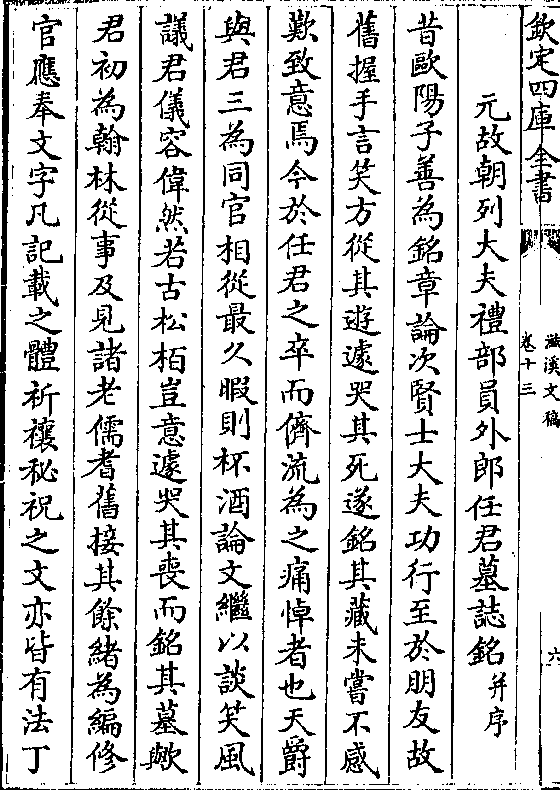 欽定四庫全書
滋溪文稿
卷十三
六
元故朝列大夫禮部員外郎任君墓誌銘并序
昔歐陽子善為銘章論次賢士大夫功行至於朋友故
舊握手言笑方從其遊遽哭其死遂銘其藏未嘗不感
歎致意焉今於任君之卒而儕流為之痛悼者也天爵
與君三為同官相從最久暇則杯酒論文繼以談笑風
議君儀容偉然若古松栢豈意遽哭其喪而銘其墓歟
君初為翰林從事及見諸老儒耆舊接其餘緒為編修
官應奉文字凡記載之體祈禳秘祝之文亦皆有法丁